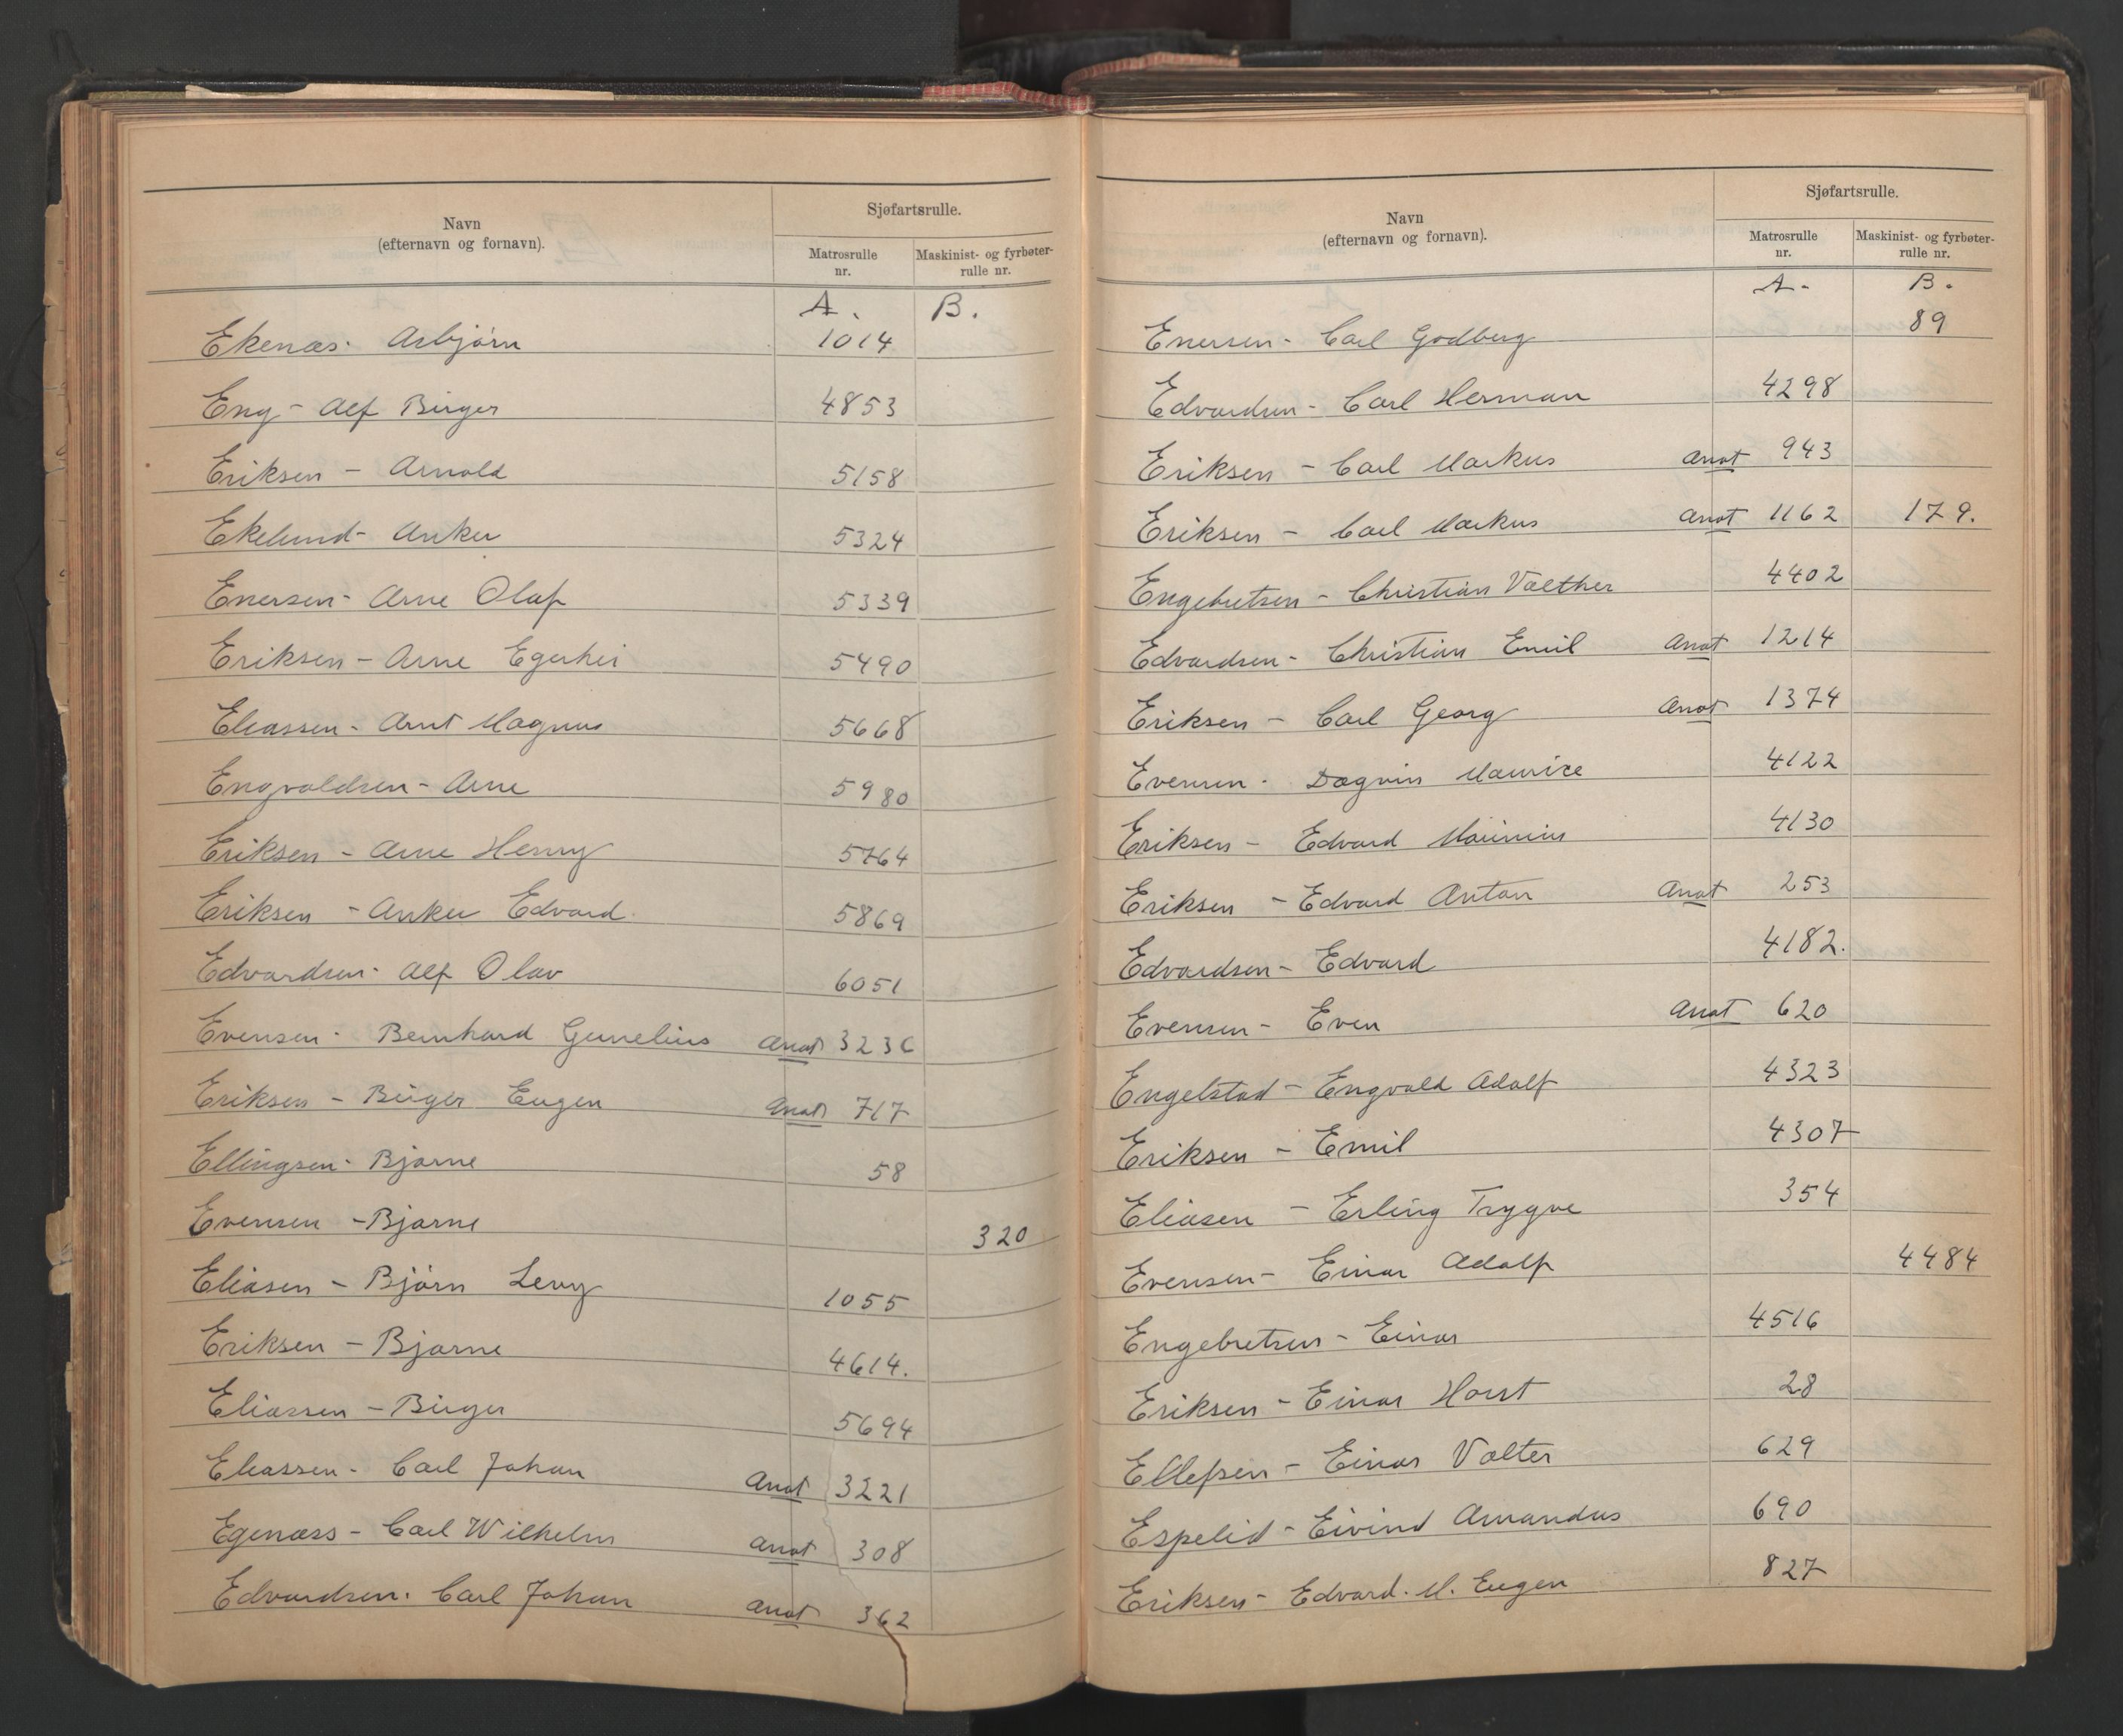 Navn
(efternavn og fornavn).
Sjøfartsrulle.
Matrosrulle
nr.
Maskinist- og fyrbøter-
rulle nr.
A. B.
Ekenæs. Asbjørn 1014
Eng - Alf Birger 4853
Eriksen - Arnold 5158
Ekelund - Anker 5324
Enersen - Arne Olaf 5339
Eriksen - Arne Egerhei 5490
Eleassen - Arnt Magnus 5668
Engvaldsen - Arne 5980
Eriksen - Arne Henry 5764
Eriksen - Anker Edvard 5869
Edvardsen - Alf Olav 6051
Evensen - Bernhard Gunelius Anot 3236
Eriksen - Birger Eugen Anot 717
Ellingsen - Bjarne 58
Evensen - Bjarne 320
Eliasen - Bjørn Levy 1055
Eriksen - Bjarne 4614.
Eliassen - Birger 5694
Eleassen - Carl Johan Anot 3221
Egenæss - Carl Wilhelm Anot 308
Edvardsen. Carl Johan Anot 362
Navn
(efternavn og fornavn).
Sjøfartsrulle.
Matrosrulle
nr.
Maskinist- og fyrbøter-
rulle nr.
A. B.
Enersen - Carl Godberg 89
Edvardsen - Carl Herman 4298
Eriksen - Carl Markus Anot 943
Eriksen - Carl Markus Anot 1162 179.
Engebretsen - Christian Valther 4402
Edvardsen - Christian Emil Anot 1214
Eriksen - Carl Georg Anot 1374
Evensen - Dagvin Maurice 4122
Eriksen - Edvard 4130
Eriksen - Edvard Anton Anot 253
Edvardsen - Edvard 4182.
Evensen - Even Anot 620
Engelstad - Engvald Adolf 4323
Eriksen - Emil 4307
Eliasen - Erling Trygve 354
Evensen - Einar Adolf 4484
Engebretsen - Einar 4516
Eriksen - Einar Horst 28
Ellefsen - Einar Valter 629
Espelid - Eivind Amandus 690
Eriksen - Edvard. M. Eugen 827